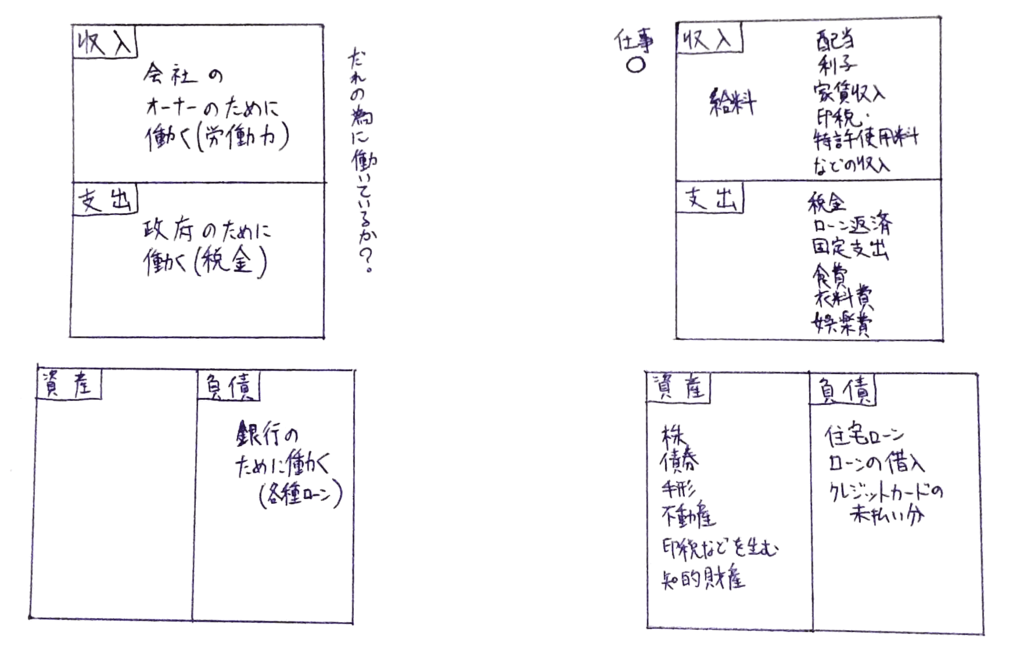 収入
会社の
オーナーのために
働く(労働力)
だれの為に働いているか?。
支出
政府のために
働く(税金)
資産
負債
銀行の
ために働く
(各種ローン)
仕事
○
収入
給料
配当
利子
家賃収入
印税・
特許使用料
などの収入
支出
税金
ローン返済
固定支出
食費
衣料費
娯楽費
資産
株
債券
手形
不動産
印税などを生む
知的財産
負債
住宅ローン
ローンの借入
クレジットカードの
未払い分